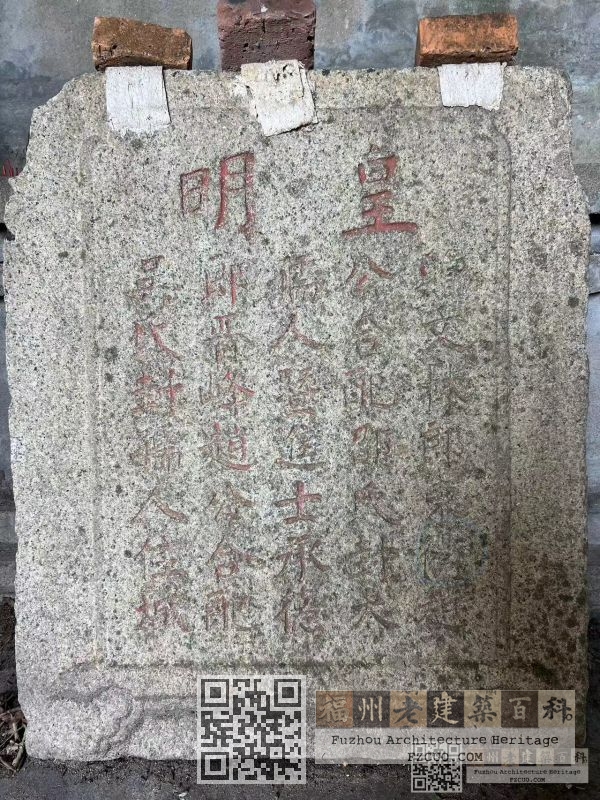 皇明
文林郎趙
公合配邵氏封太
孺人暨進士承德
郎晋峰趙公合配
吳氏封孺人佳城
福州老建築百科
Fuzhou Architecture Heritage
FZCUO.COM
福州老建築百科
Fuzhou Architecture Heritage
FZCUO.COM